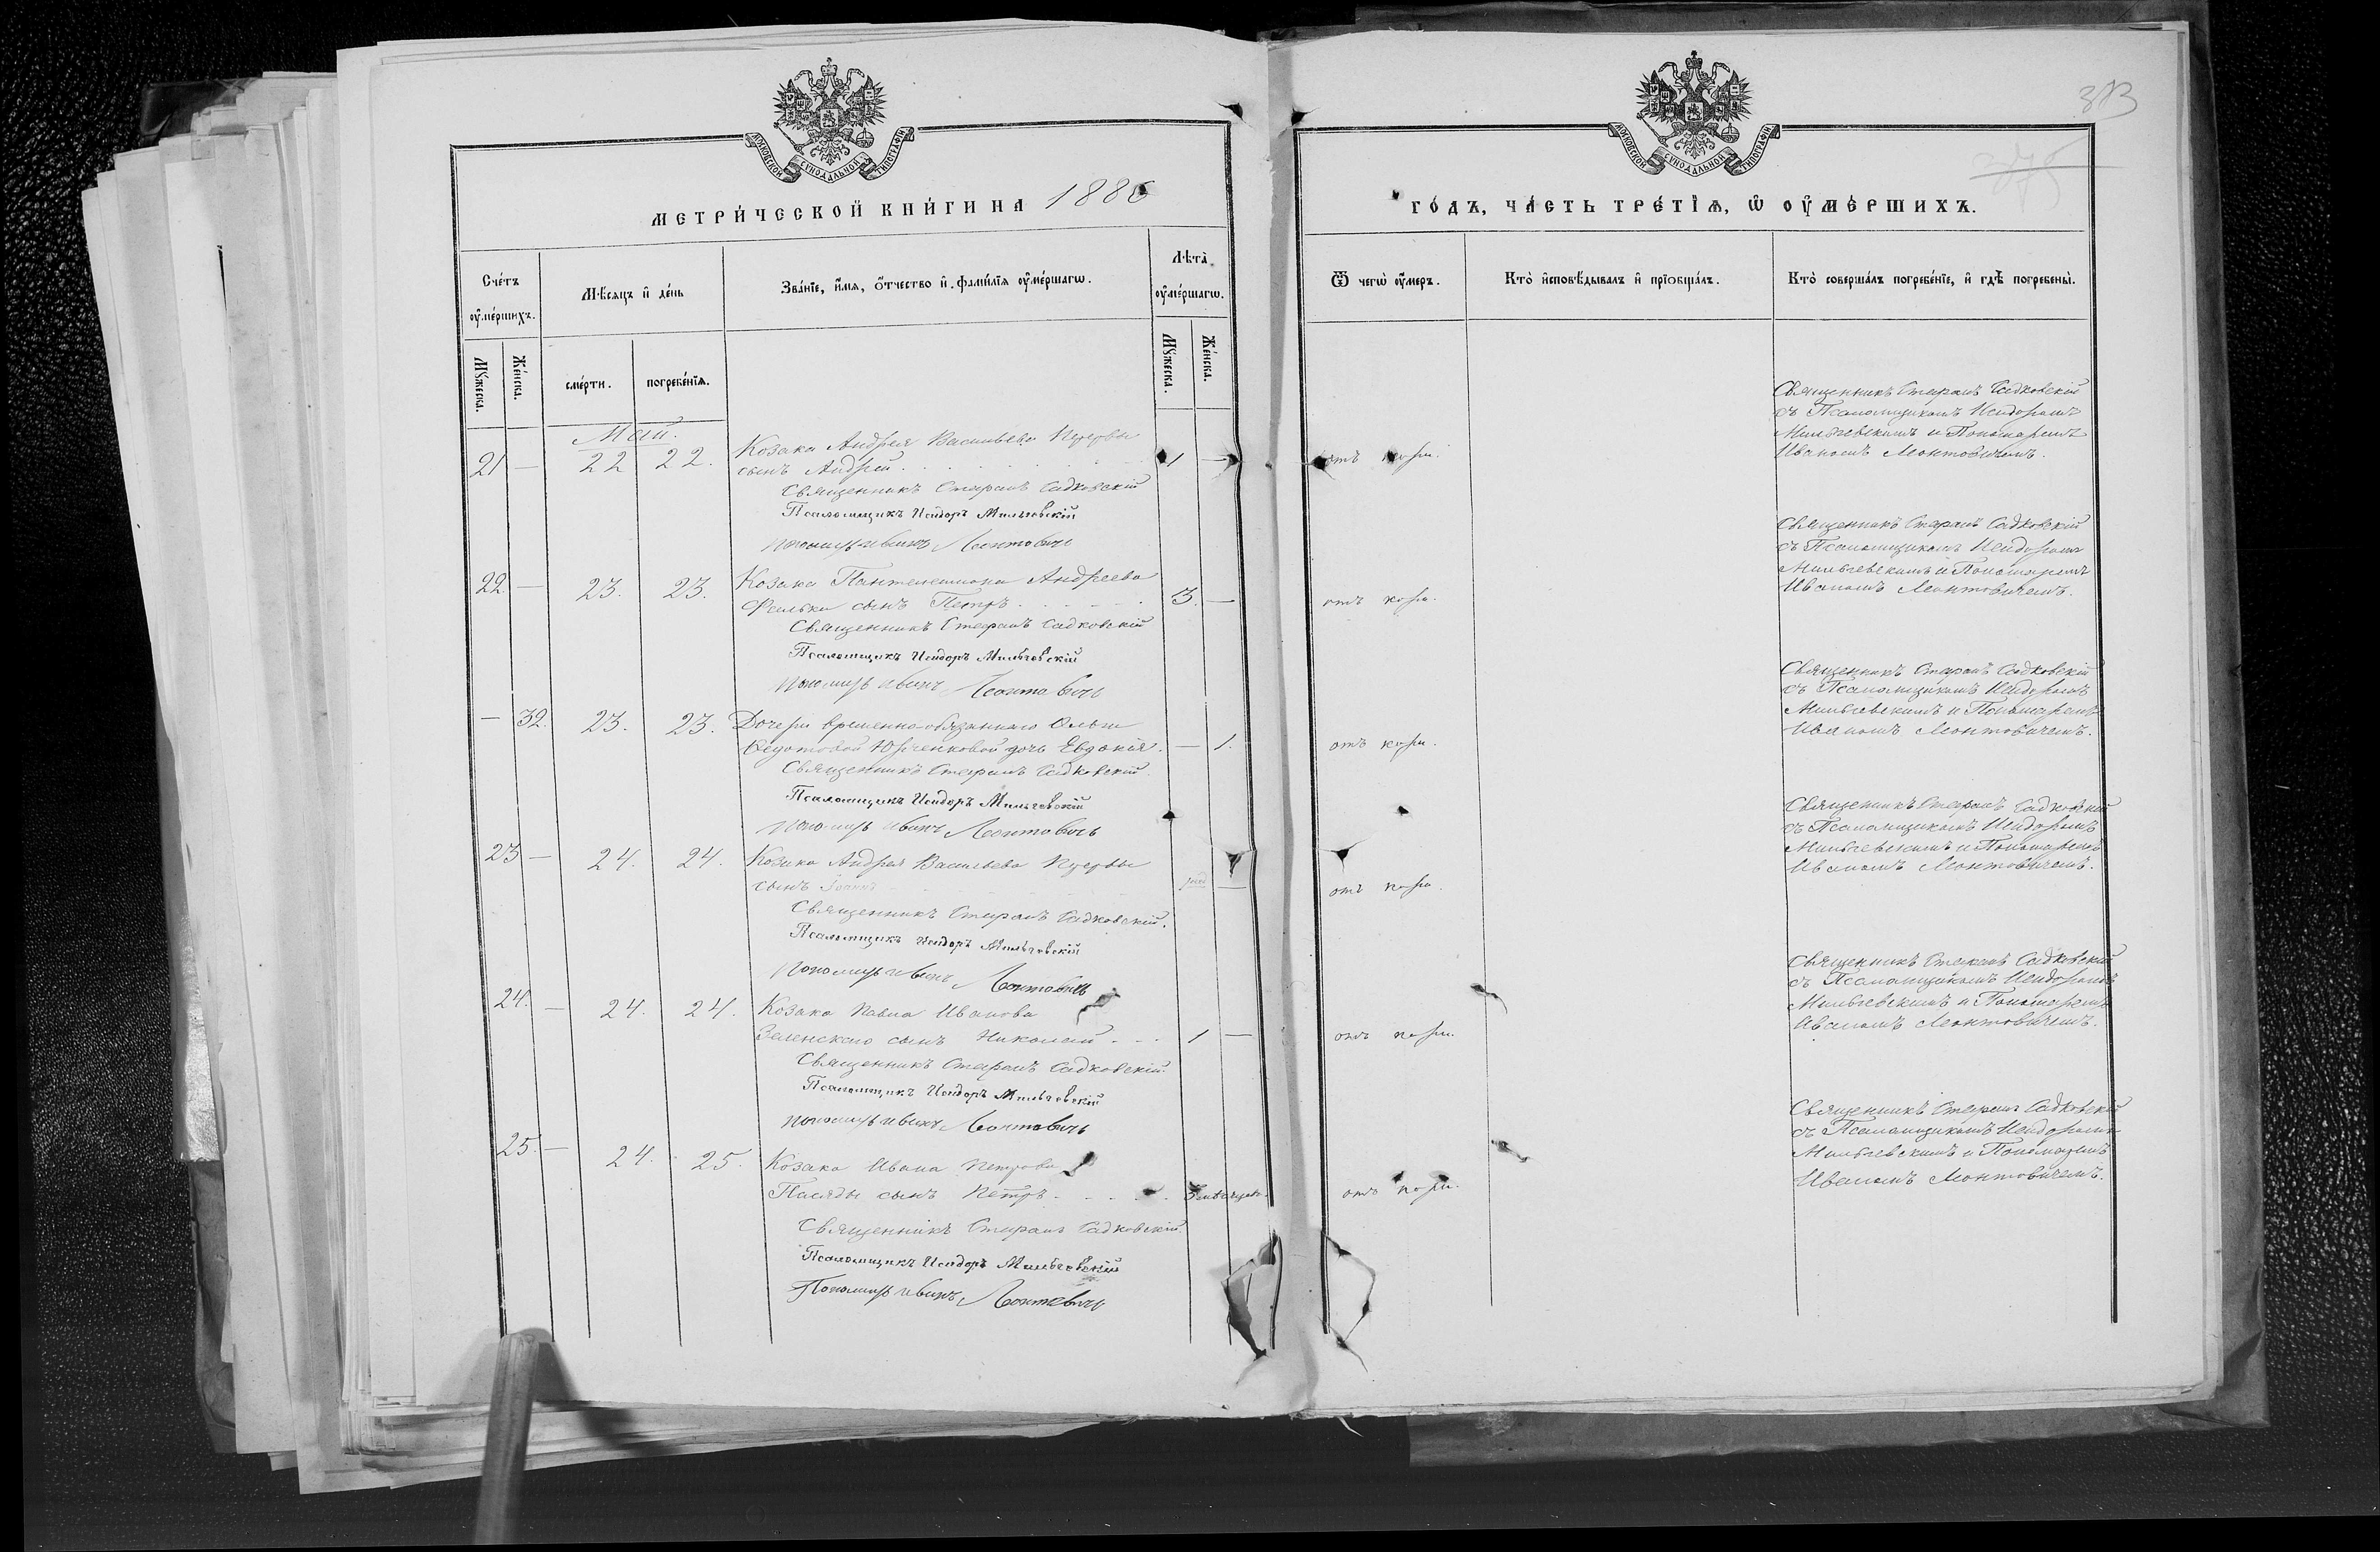 МОСКОВСКОЙ СѴНОДАЛЬНОЙ ТИПОГРАФІИ
МЕТРИ́ЧЕСКОЙ КНИ́ГИ НА 1886
Сче́тъ оу҆ме́ршихъ.
Мѣ́сяцъ и҆ де́нь
Зва́нїе, и҆́мя, ѻ҆́тчество и҆ фами́лїя оу҆ме́ршагѡ.
Лѣта̀ оу҆ме́ршагѡ.
Мꙋ́жеска.
Же́нска.
сме́рти.
погребе́нїѧ.
Мꙋ́жеска.
Же́нска.
Май.
21 — 22 22. Козака Андрея Васильева
сынъ Андрей . . . . . 1 —
Священникъ Стефанъ Садковскій
Псаломщикъ Исидоръ Мильчевскій
Пономарь Иванъ Леонтовичъ
22. — 23. 23. Козака Пантелеимона Андреева
сынъ Петръ . . . . . 3. —
Священникъ Стефанъ Садковскій
Псаломщикъ Исидоръ Мильчевскій
Пономарь Иванъ Леонтовичъ
— 32. 23. 23. Дочери временно-обязаннаго Ольги
Федотовой Юрченковой дочь Евдокія. — 1.
Священникъ Стефанъ Садковскій
Псаломщикъ Исидоръ Мильчевскій
Пономарь Иванъ Леонтовичъ
23 — 24. 24. Козака Андрея Васильева
сынъ Іоаннъ —
Священникъ Стефанъ Садковскій.
Псаломщикъ Исидоръ Мильчевскій
Пономарь Иванъ Леонтовичъ
24. — 24. 24. Козака Павла Иванова
Зеленскаго сынъ Николай . . . 1 —
Священникъ Стефанъ Садковскій.
Псаломщикъ Исидоръ Мильчевскій
Пономарь Иванъ Леонтовичъ
25. — 24. 25. Козака Ивана Петрова
сынъ Петръ . . . . .
Священникъ Стефанъ Садковскій.
Псаломщикъ Исидоръ Мильчевскій
Пономарь Иванъ Леонтовичъ
МОСКОВСКОЙ СѴНОДАЛЬНОЙ ТИПОГРАФІИ
ГО́ДЪ, ЧА́СТЬ ТРЕ́ТЇѦ, Ѡ҆ ОУ҆МЕ́РШИХЪ.
Ѿ чегѡ̀ оу҆́меръ.
Кто̀ и҆сповѣ́дывалъ и҆ прїобща́лъ.
Кто̀ соверша́лъ погребе́нїе, и҆ гдѣ̀ погребены̀.
Священникъ Стефанъ Садковскій
съ Псаломщикомъ Исидоромъ
Мильчевскимъ и Пономаремъ
отъ кори. Иваномъ Леонтовичемъ.
Священникъ Стефанъ Садковскій
съ Псаломщикомъ Исидоромъ
Мильчевскимъ и Пономаремъ
отъ кори. Иваномъ Леонтовичемъ.
Священникъ Стефанъ Садковскій
съ Псаломщикомъ Исидоромъ
Мильчевскимъ и Пономаремъ
отъ кори. Иваномъ Леонтовичемъ.
Священникъ Стефанъ Садковскій
съ Псаломщикомъ Исидоромъ
Мильчевскимъ и Пономаремъ
отъ кори. Иваномъ Леонтовичемъ.
Священникъ Стефанъ Садковскій
съ Псаломщикомъ Исидоромъ
Мильчевскимъ и Пономаремъ
отъ кори. Иваномъ Леонтовичемъ.
Священникъ Стефанъ Садковскій
съ Псаломщикомъ Исидоромъ
Мильчевскимъ и Пономаремъ
отъ кори. Иваномъ Леонтовичемъ.